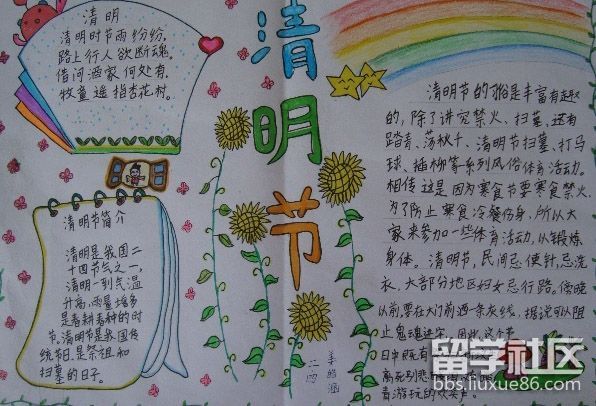 清明
清明时节雨纷纷,
路上行人欲断魂。
借问酒家何处有,
牧童遥指杏花村。
清明节
清明节简介
清明是我国二
十四节气之一,
清明一到气温
升高,雨量增多
是春耕春种的时
节。清明节是我国传
统节日,是祭祖和
扫墓的日子。
清明节的 是丰富有趣
的,除了讲究禁火、扫墓,还有
踏青、荡秋千、清明节扫墓、打马
球、插柳等系列风俗体育活动。
相传这是因为寒食节要寒食禁火,
为了防止寒食冷餐伤身,所以大
家来参加一些体育活动,以锻炼
身体。清明节,民间忌使针,忌洗
衣,大部分地区妇女忌行路。傍晚
以前,要在大门前洒一条灰线,据说可以阻
止鬼魂进宅。因此,这个节
日中既有
离死别悲
青游玩的欢笑声。
二四
留学社区
bbs.liuxue86.com